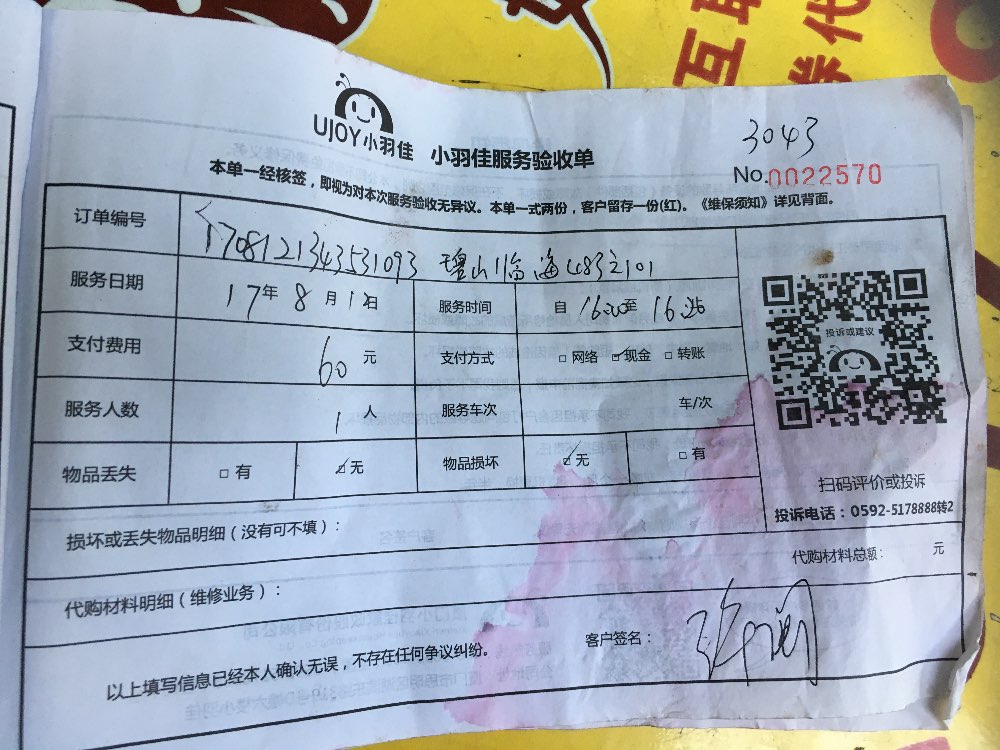 互联
券代
UJOY小羽佳 小羽佳服务验收单
3043
No.0022570
本单一经核签，即视为对本次服务验收无异议。本单一式两份，客户留存一份(红)。《维保须知》详见背面。
订单编号 1708121343531093 碧山临海483之101
服务日期 17年8月18日 服务时间 自16:00至16:26
支付费用 60元 支付方式 □网络 ☑现金 □转账
服务人数 1人 服务车次 车/次
物品丢失 □有 ☑无 物品损坏 ☑无 □有
投诉或建议
扫码评价或投诉
投诉电话：0592-5178888转2
损坏或丢失物品明细（没有可不填）：
代购材料明细（维修业务）： 代购材料总额： 元
以上填写信息已经本人确认无误，不存在任何争议纠纷。 客户签名：